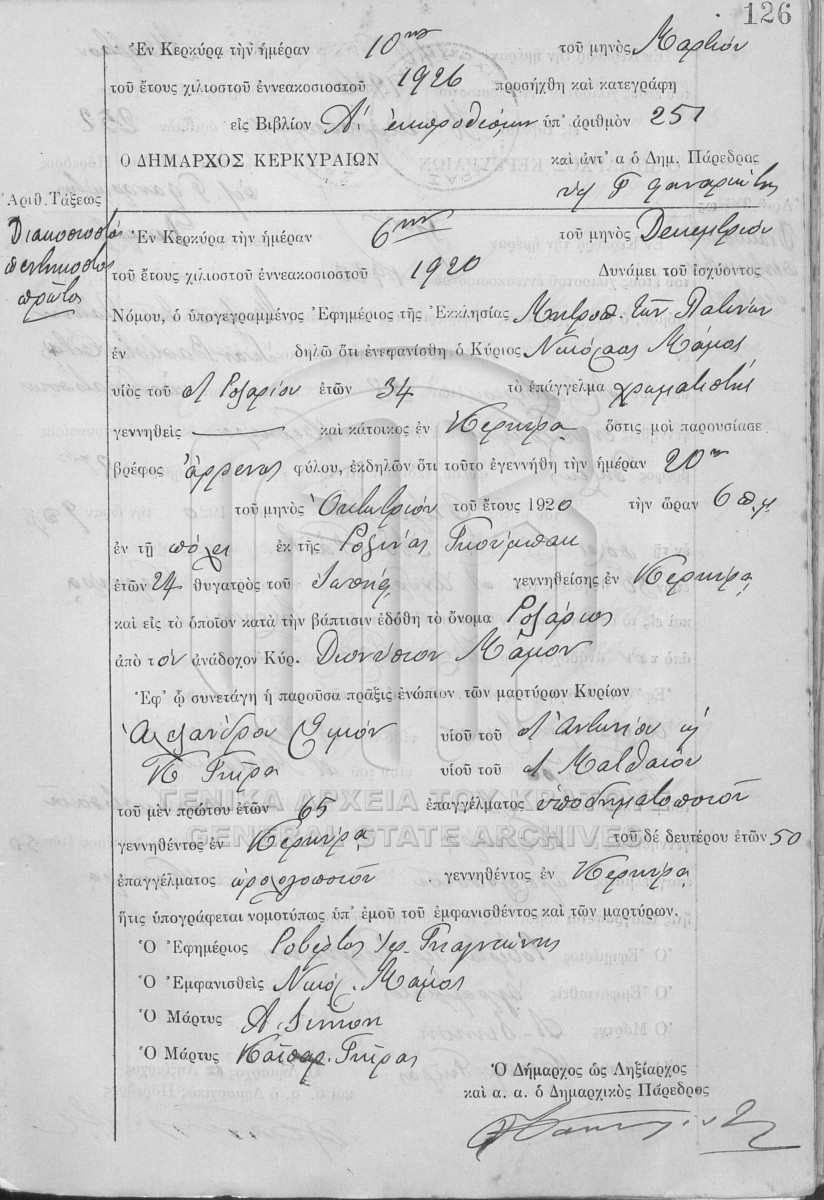 126
Ἐν Κερκύρᾳ τὴν ἡμέραν 10ην τοῦ μηνὸς Μαρτίου
τοῦ ἔτους χιλιοστοῦ ἐννεακοσιοστοῦ 1926 προσήχθη καὶ κατεγράφη
εἰς Βιβλίον Α΄. ἐκπροθέσμων ὑπ᾽ ἀριθμὸν 251
Ο ΔΗΜΑΡΧΟΣ ΚΕΡΚΥΡΑΙΩΝ καὶ ἀντ᾽ α ὁ Δημ. Πάρεδρας
Ἀριθ. Τάξεως
Διακοσιοστός
πεντηκοστός
πρῶτος
Ἐν Κερκύρᾳ τὴν ἡμέραν 6ην τοῦ μηνὸς Δεκεμβρίου
τοῦ ἔτους χιλιοστοῦ ἐννεακοσιοστοῦ 1920 Δυνάμει τοῦ ἰσχύοντος
Νόμου, ὁ ὑπογεγραμμένος Ἐφημέριος τῆς Ἐκκλησίας Μητροπ. τῶν Λατίνων
ἐν δηλῶ ὅτι ἐνεφανίσθη ὁ Κύριος Νικόλαος Μάμος
υἱὸς τοῦ Ροζαρίου ἐτῶν 34 τὸ ἐπάγγελμα χρωματιστής
γεννηθεὶς — καὶ κάτοικος ἐν Κέρκυρᾳ ὅστις μοὶ παρουσίασε
βρέφος ἄρρενος φύλου, ἐκδηλῶν ὅτι τοῦτο ἐγεννήθη τὴν ἡμέραν 20ην
τοῦ μηνὸς Ὀκτωβρίου τοῦ ἔτους 1920 τὴν ὥραν 6 π.μ.
ἐν τῇ πόλει ἐκ τῆς Ροζίνας
ἐτῶν 24 θυγατρὸς τοῦ Ἰωσήφ γεννηθείσης ἐν Κερκύρᾳ
καὶ εἰς τὸ ὁποῖον κατὰ τὴν βάπτισιν ἐδόθη τὸ ὄνομα Ροζάριος
ἀπὸ τὸν ἀνάδοχον Κύρ. Διονύσιον Μάμον
Ἐφ᾽ ᾧ συνετάγη ἡ παροῦσα πρᾶξις ἐνώπιον τῶν μαρτύρων Κυρίων
Ἀλεξάνδρου Σιμόν υἱοῦ τοῦ Ἀντωνίου κ
Κ Γκίρα υἱοῦ τοῦ Ματθαίου
ΓΕΝΙΚΑ ΑΡΧΕΙΑ ΤΟΥ ΚΡΑΤΟΥΣ
τοῦ μὲν πρώτου ἐτῶν 65 ἐπαγγέλματος ὑποδηματοποιοῦ
GENERAL STATE ARCHIVES
γεννηθέντος ἐν Κερκύρᾳ τοῦ δὲ δευτέρου ἐτῶν 50
ἐπαγγέλματος ὡρολογοποιοῦ γεννηθέντος ἐν Κερκύρᾳ
ἥτις ὑπογράφεται νομοτύπως ὑπ᾽ ἐμοῦ τοῦ ἐμφανισθέντος καὶ τῶν μαρτύρων.
Ὁ Ἐφημέριος Ροβέρτος
Ὁ Ἐμφανισθεὶς Νικόλ. Μάμος
Ὁ Μάρτυς A. Simon
Ὁ Μάρτυς Καίσαρ. Γκίρας
Ὁ Δήμαρχος ὡς Ληξίαρχος
καὶ α. α. ὁ Δημαρχικὸς Πάρεδρος